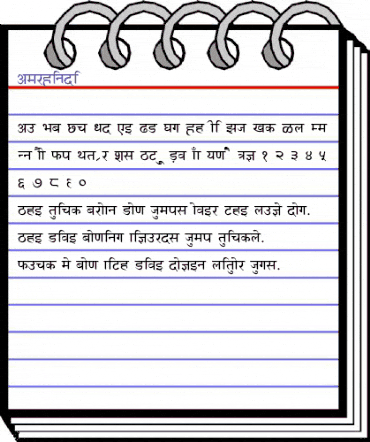 अमरहिनदि
अउ भब छच धद एइ ढड घग हह ीि झज खक ळल म्म
न्न ौो फप थत,र शस ठट ूु ड़व ाँ यण ैे त्रज्ञ १ २ ३ ४ ५
६ ७ ८ ९ ०
ठहइ तुचिक बरोान डोण जुमपस ोवइर टहइ लउज्ञे दोग.
ठहइ डविइ बोणनिग ाज्ञिउरदस जुमप तुचिकले.
फउचक मे बोण ाटिह डविइ दोज्ञइन लतिुोर जुगस.